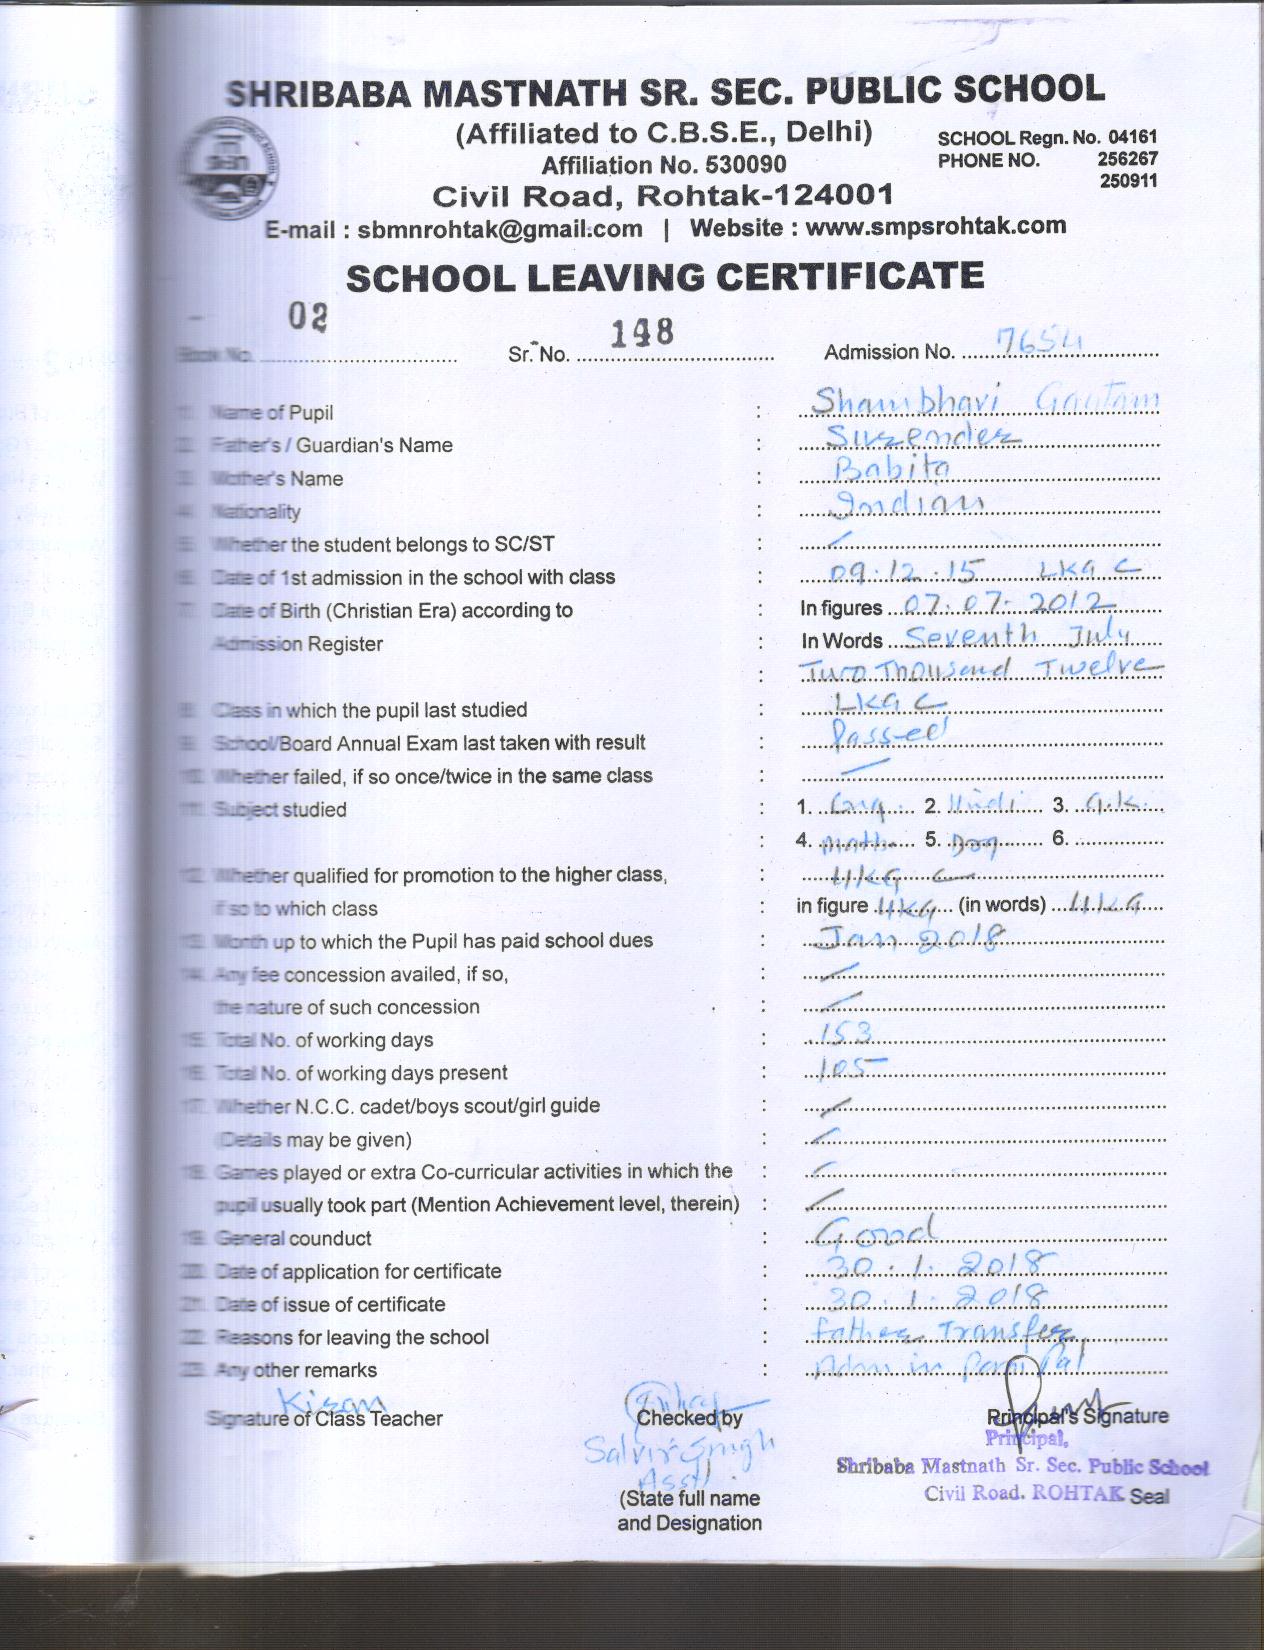 SHRIBABA MASTNATH SR. SEC. PUBLIC SCHOOL
(Affiliated to C.B.S.E., Delhi)
Affiliation No. 530090
SCHOOL Regn. No. 04161
PHONE NO. 256267
250911
Civil Road, Rohtak-124001
E-mail : sbmnrohtak@gmail.com | Website : www.smpsrohtak.com
SCHOOL LEAVING CERTIFICATE
Book No. 02 Sr. No. 148 Admission No. 7654
1. Name of Pupil : Shambhavi Gautam
2. Father's / Guardian's Name : Surender
3. Mother's Name : Babita
4. Nationality : Indian
5. Whether the student belongs to SC/ST :
6. Date of 1st admission in the school with class : 09.12.15 LKG C
7. Date of Birth (Christian Era) according to : In figures 07.07.2012
Admission Register : In Words Seventh July
: Two Thousand Twelve
8. Class in which the pupil last studied : LKG C
9. School/Board Annual Exam last taken with result : Passed
10. Whether failed, if so once/twice in the same class :
11. Subject studied : 1. Eng. 2. Hindi 3. G.K.
: 4. Math 5. 6.
12. Whether qualified for promotion to the higher class, : UKG C
if so to which class : in figure UKG (in words) UKG
13. Month up to which the Pupil has paid school dues : Jan 2018
14. Any fee concession availed, if so, :
the nature of such concession :
15. Total No. of working days : 153
16. Total No. of working days present : 105
17. Whether N.C.C. cadet/boys scout/girl guide :
(Details may be given) :
18. Games played or extra Co-curricular activities in which the :
pupil usually took part (Mention Achievement level, therein) :
19. General counduct : Good
20. Date of application for certificate : 30.1.2018
21. Date of issue of certificate : 30.1.2018
22. Reasons for leaving the school : Father Transfer
23. Any other remarks : Adm in
Kiran
Signature of Class Teacher Checked by Principal's Signature
Principal,
Singh Shribaba Mastnath Sr. Sec. Public School
Asstt Civil Road. ROHTAK Seal
(State full name
and Designation